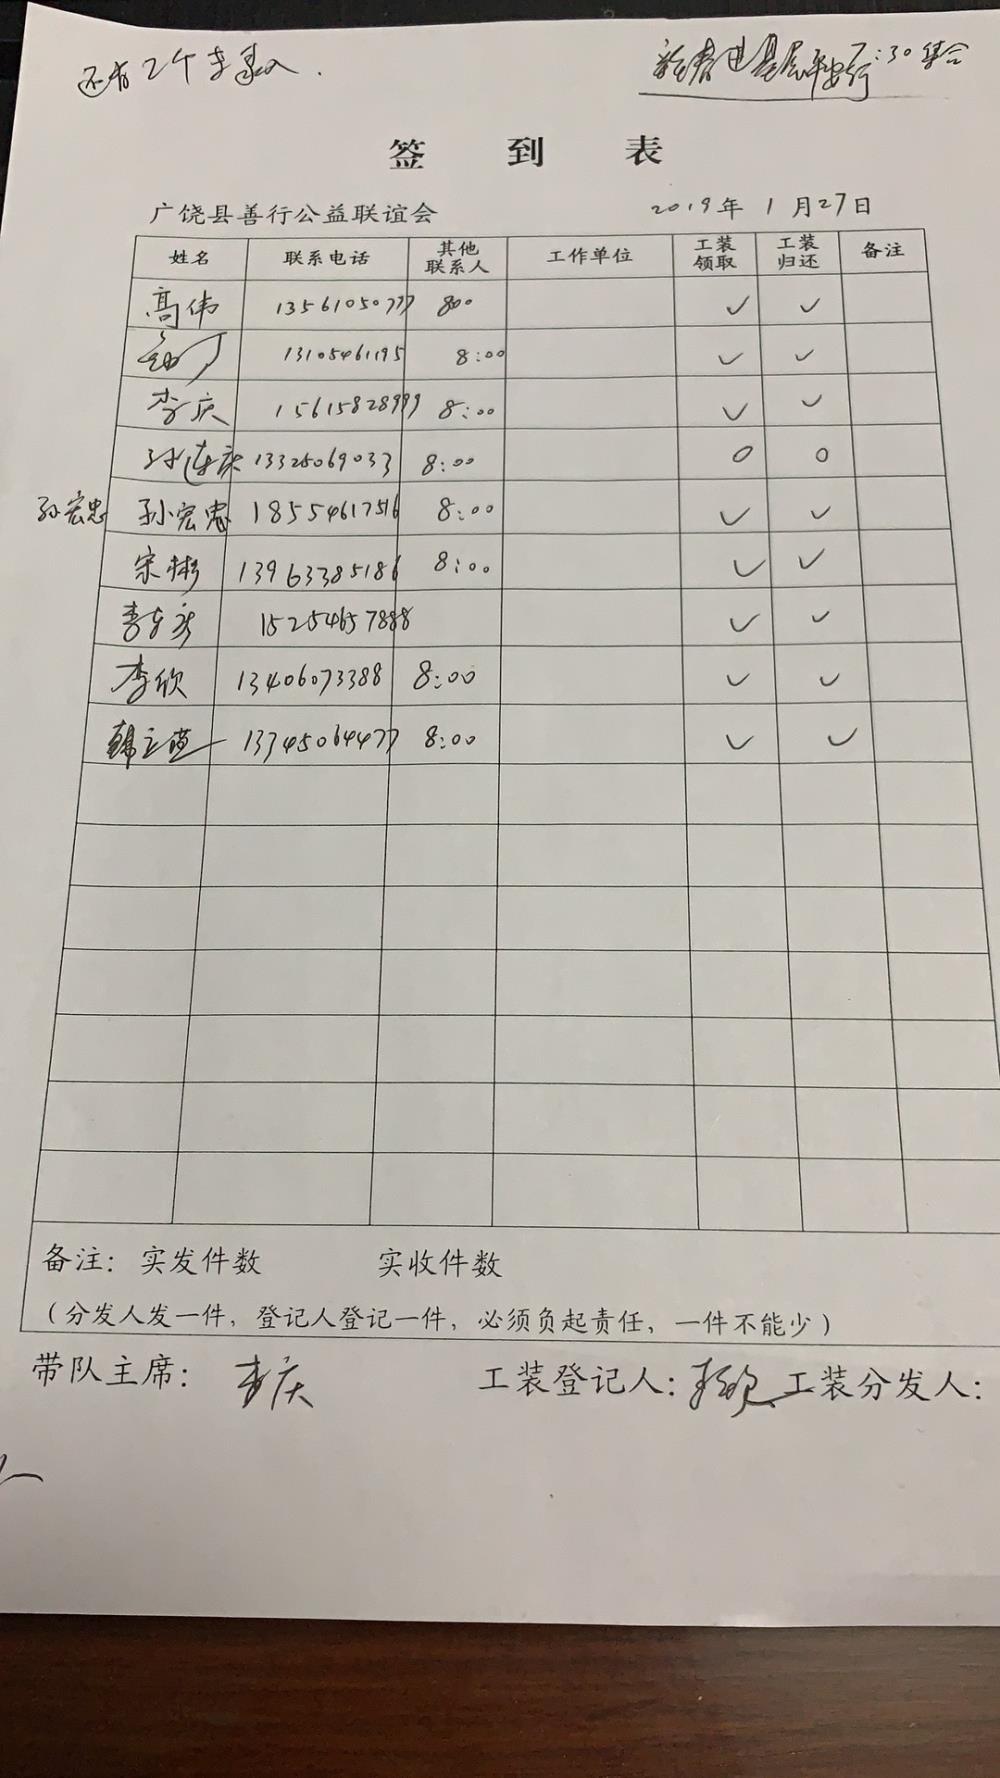 还有2个李
新春进基层平安行 :30集合
签 到 表
广饶县善行公益联谊会 2019年1月27日
姓名 联系电话 其他联系人 工作单位 工装领取 工装归还 备注
高伟 13561050777 800 ✓ ✓
13105461195 8:00 ✓ ✓
李庆 15615828999 8:00 ✓ ✓
孙连庆 13325069033 8:00 O O
孙宏忠 孙宏忠 18554617516 8:00 ✓ ✓
宋彬 13963385186 8:00 ✓ ✓
15254657888 ✓ ✓
李欣 13406073388 8:00 ✓ ✓
韩立 13345064477 8:00 ✓ ✓
备注：实发件数 实收件数
（分发人发一件，登记人登记一件，必须负起责任，一件不能少）
带队主席：李庆 工装登记人： 工装分发人：